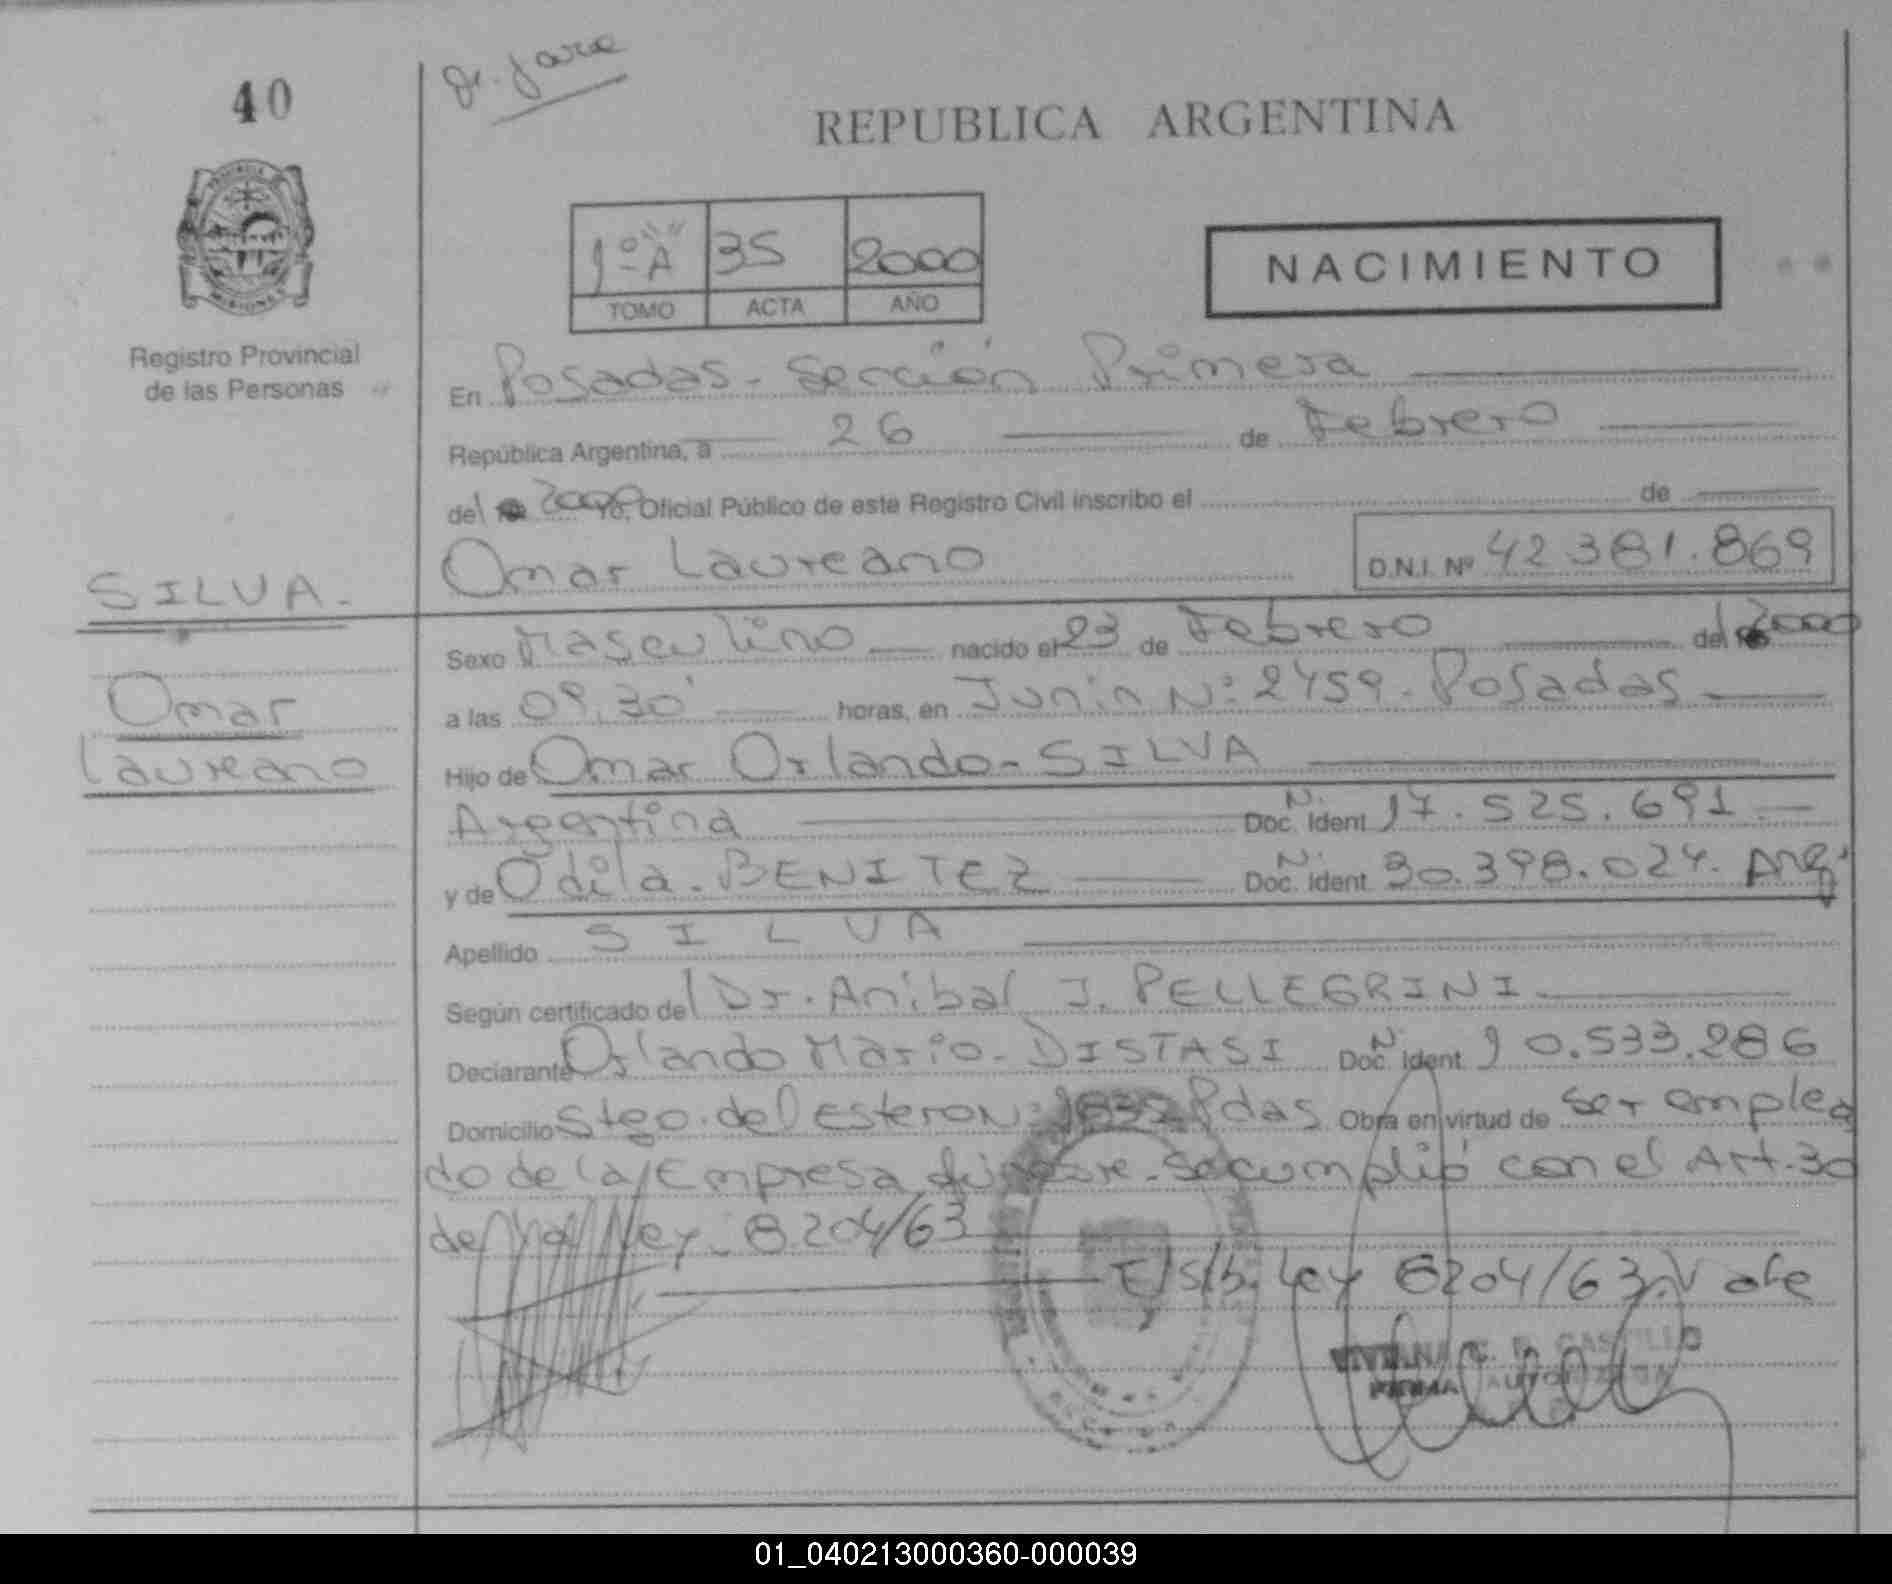 40
REPUBLICA ARGENTINA
1º "A" 35 2000
TOMO ACTA AÑO
NACIMIENTO
PROVINCIA
MISIONES
Registro Provincial
de las Personas
En Posadas - Sección Primera
República Argentina, a 26 de Febrero
del 2000 Yo, Oficial Público de este Registro Civil inscribo el de
Omar Laureano D.N.I. Nº 42 381.869
SILVA.
Omar
Laureano
Sexo Masculino nacido el 23 de Febrero del 2000
a las 09,30' horas, en Junin Nº: 2459. Posadas
Hijo de Omar Orlando - SILVA
Argentina N. Doc. Ident 17.525.691
y de Odila. BENITEZ N. Doc. Ident 30.398.024. Arg.
Apellido SILVA
Según certificado del Dr. Anibal J. PELLEGRINI
Declarante Orlando Mario - DISTASI N. Doc. Ident 10.533.286
Domicilio Stgo. del Estero N: Pdas Obra en virtud de ser emplea
do de la Empresa fúnebre - se cumplió con el Art. 30
de la Ley 8204/63
E/s/b. Ley 8204/63. Vale
CASTILLO
FIRMA AUTORIZADA
01_040213000360-000039